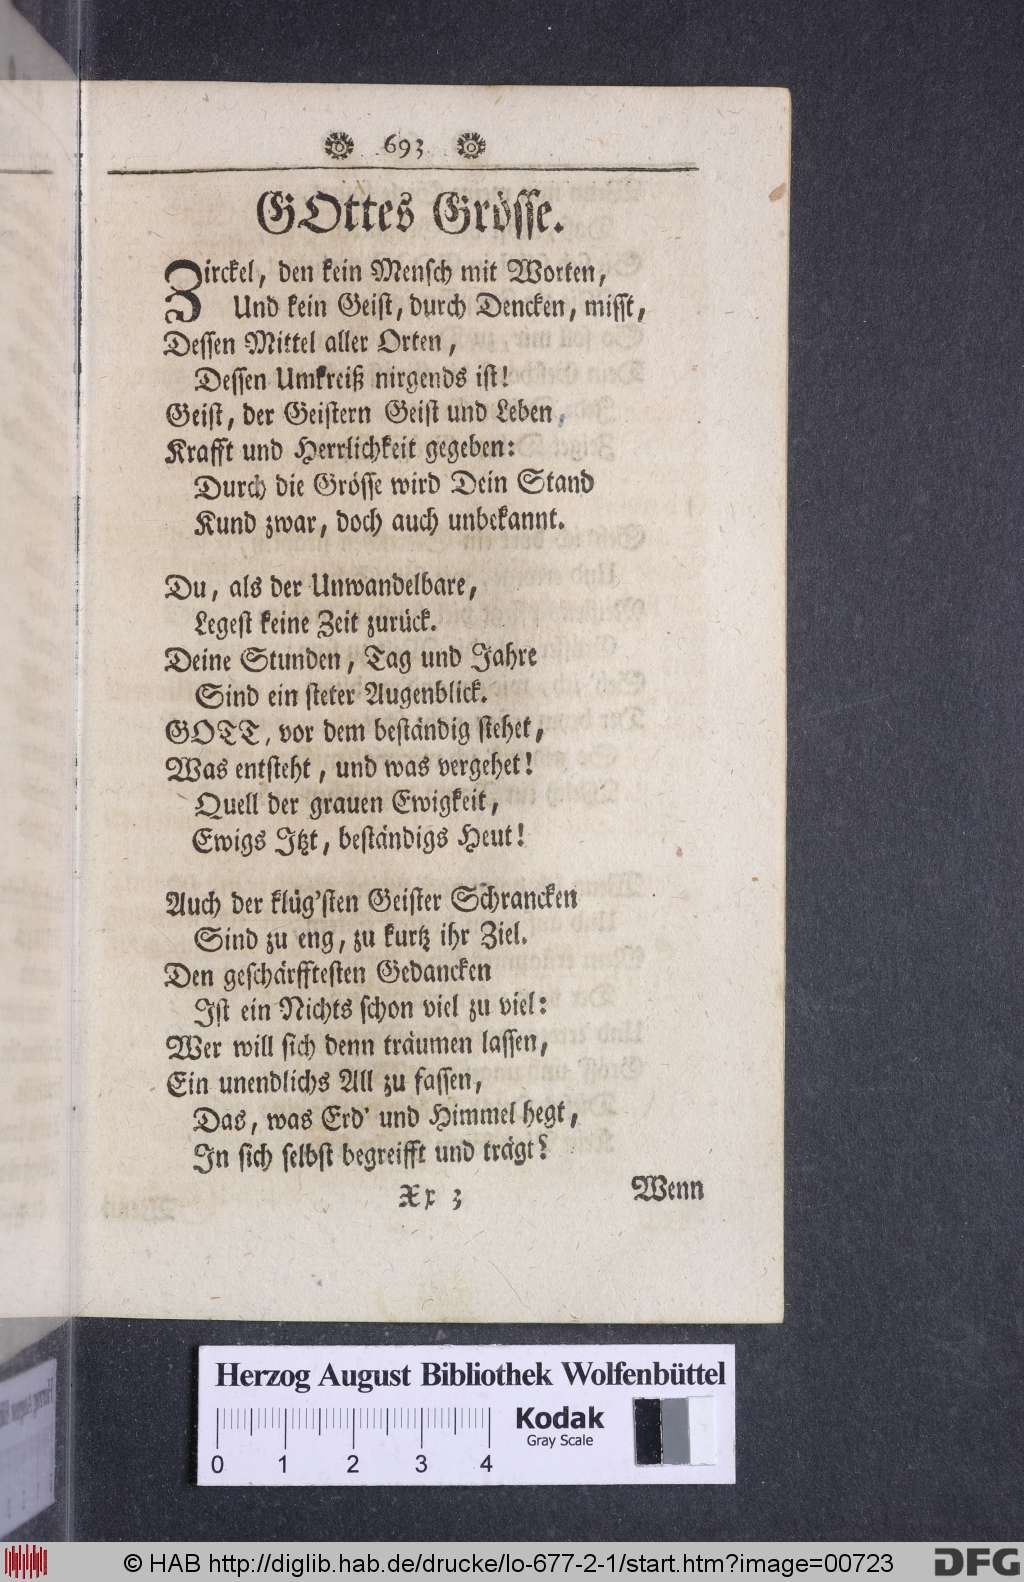 693
GOttes Grösse.
Zirckel, den kein Mensch mit Worten,
Und kein Geist, durch Dencken, misst,
Dessen Mittel aller Orten,
Dessen Umkreiß nirgends ist!
Geist, der Geistern Geist und Leben,
Krafft und Herrlichkeit gegeben:
Durch die Grösse wird Dein Stand
Kund zwar, doch auch unbekannt.
Du, als der Unwandelbare,
Legest keine Zeit zurück.
Deine Stunden, Tag und Jahre
Sind ein steter Augenblick.
GOTT, vor dem beständig stehet,
Was entsteht, und was vergehet!
Quell der grauen Ewigkeit,
Ewigs Itzt, beständigs Heut!
Auch der klüg'sten Geister Schrancken
Sind zu eng, zu kurtz ihr Ziel.
Den geschärfftesten Gedancken
Ist ein Nichts schon viel zu viel:
Wer will sich denn träumen lassen,
Ein unendlichs All zu fassen,
Das, was Erd' und Himmel hegt,
In sich selbst begreifft und trägt?
Xx 3
Wenn
Herzog August Bibliothek Wolfenbüttel
Kodak
Gray Scale
0 1 2 3 4
© HAB http://diglib.hab.de/drucke/lo-677-2-1/start.htm?image=00723
DFG